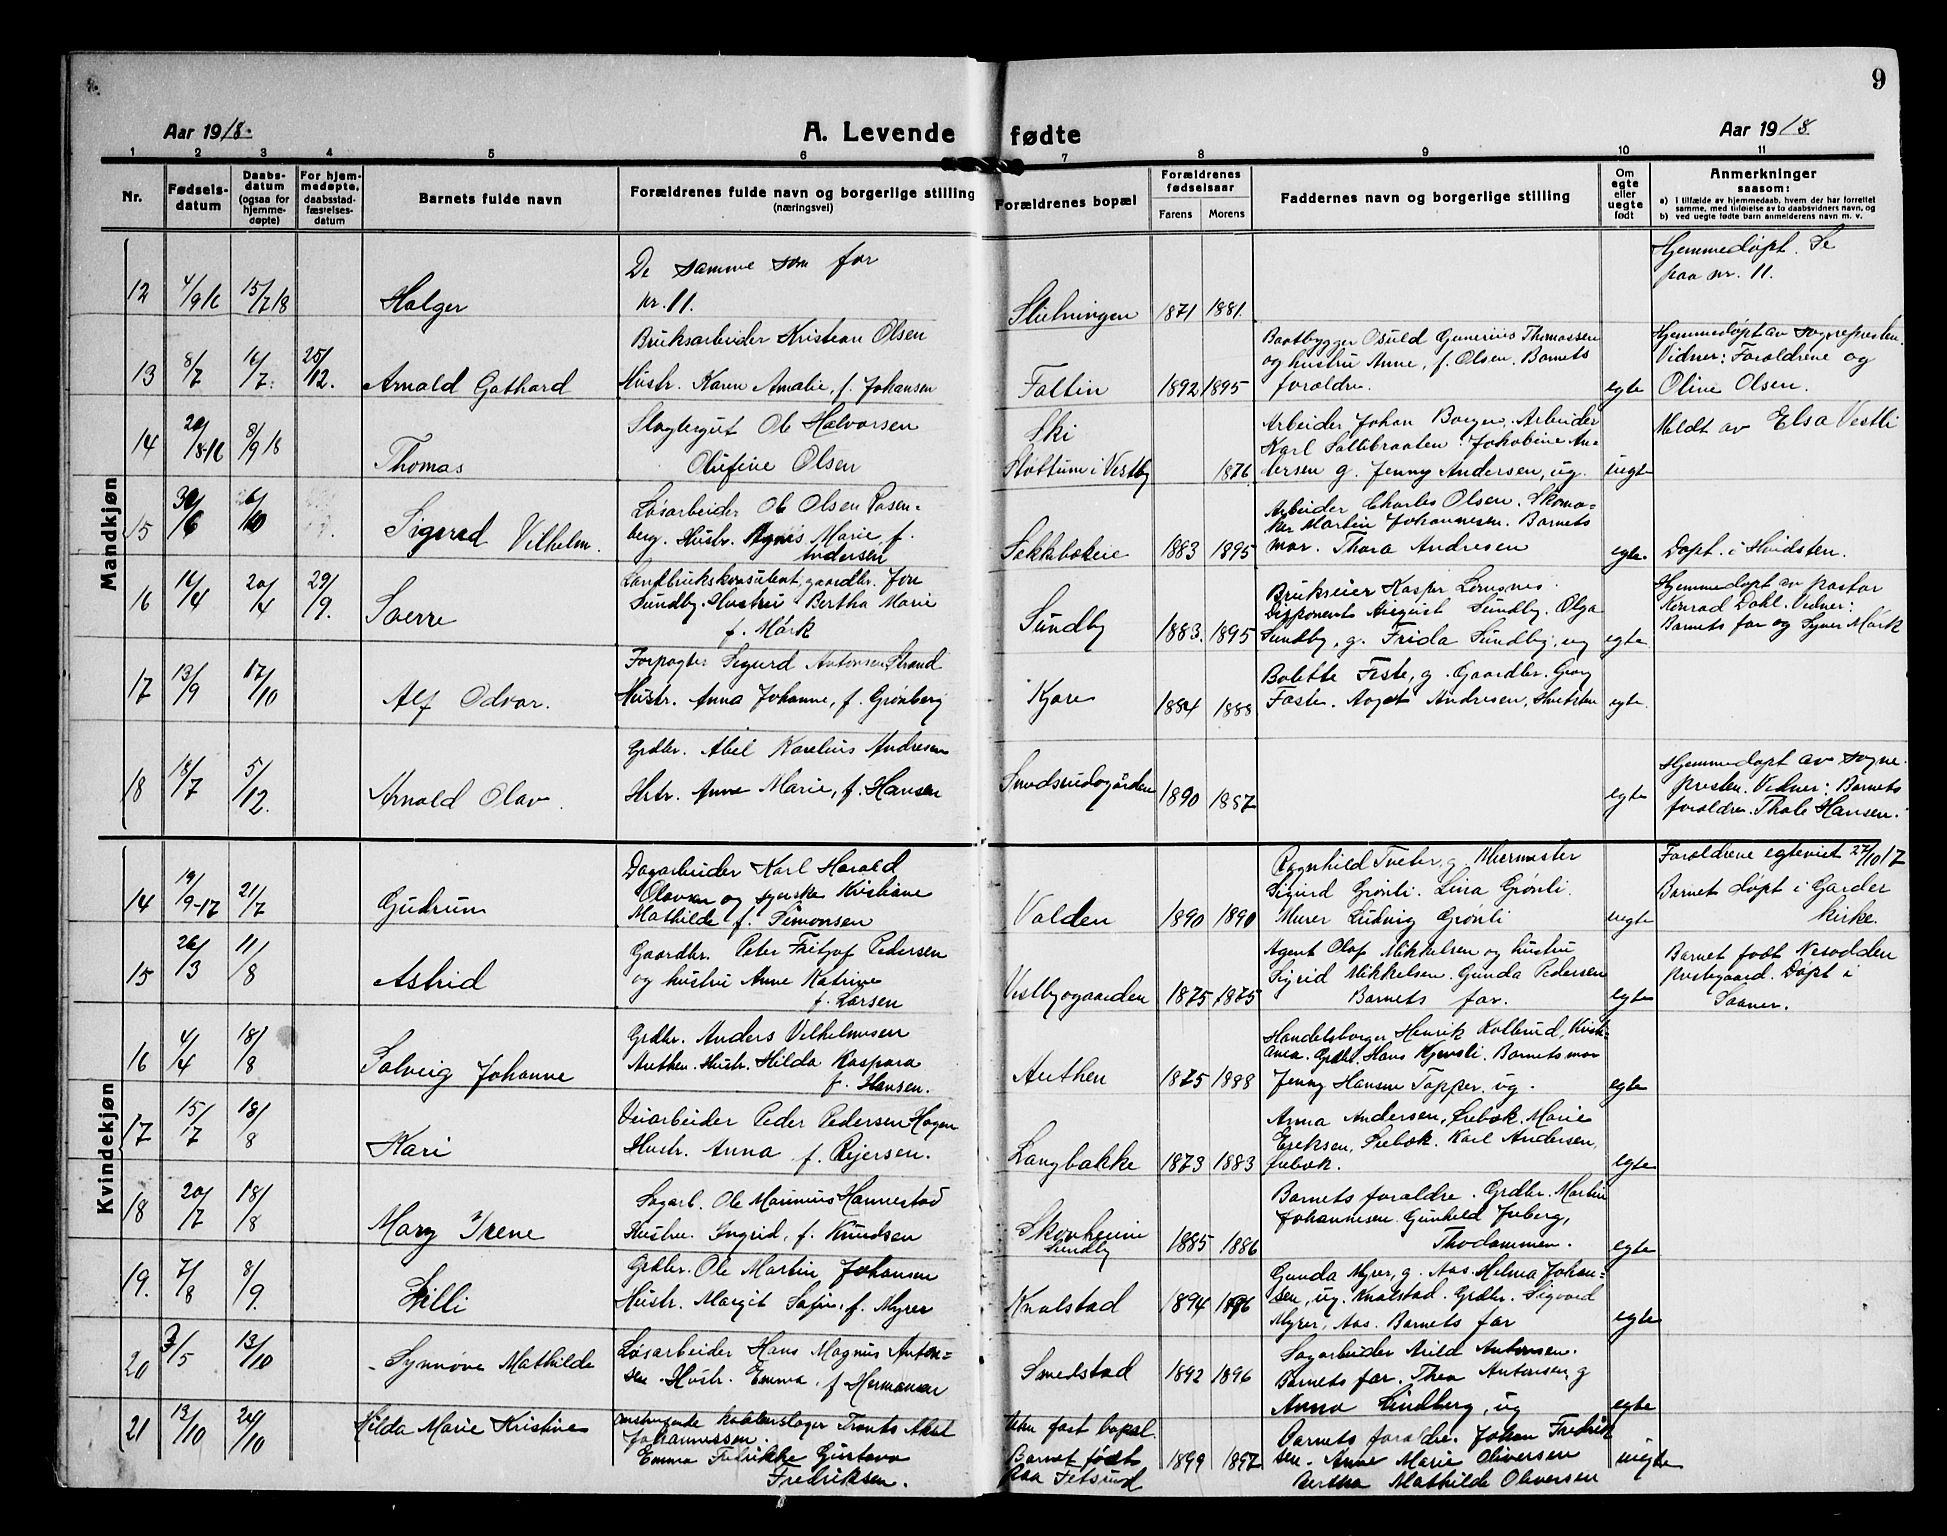 9
Aar 1918.
A. Levende fødte
Aar 1918
1 2 3 4 5 6 7 8 9 10 11
Nr.
Fødsels-
datum
Daabs-
datum
(ogsaa for
hjemme-
døpte)
For hjem-
medøpte,
daabsstad-
fæstelses-
datum
Barnets fulde navn
Forældrenes fulde navn og borgerlige stilling
(næringsvei)
Forældrenes bopæl
Forældrenes
fødselsaar
Farens Morens
Faddernes navn og borgerlige stilling
Om
egte
eller
uegte
født
Anmerkninger
saasom:
a) i tilfælde av hjemmedaab, hvem der har forrettet
samme, med tilføielse av to daabsvidners navn, og
b) ved uegte fødte barn anmelderens navn m. v.
Mandkjøn
12 4/9 16 15/7 18 Holger
De samme som for
nr. 11.
1871 1881
Hjemmedøpt. Se
paa nr. 11.
13 8/7 16/7. 25/12. Arnold Gothard
Bruksarbeider Kristian Olsen
Hustr. Karen Amalie, f. Johansen
Faltin 1892 1895
Baatbygger Osuld Gunerius Thomassen
og hustru Anne, f. Olsen. Barnets
forældre.
egte
Hjemmedøpt av sognepresten.
Vidner: Forældrene og
Oline Olsen.
14 20/8-16 8/9 18 Thomas
Slagtergut Ole Halvorsen
Olufine Olsen
Ski
Støttum i Vestby 1876
Arbeider Johan Borger. Arbeider
Karl Saltbraaten. Jakobine An-
dersen g. Jenny Andersen, ug.
uegte
Meldt av Elsa Vestli
15 30/6 6/10 Sigurd Vilhelm.
Løsarbeider Ole Olsen Rosen-
berg. Hustr. Agnes Marie, f.
Andersen
1883 1895
Arbeider Charles Olsen. Skoma-
ker Martin Johannesen. Barnets
mor. Thora Andresen
egte.
Døpt i Hvidsten.
16 16/4 20/4 29/9. Sverre
Landbrukskonsulent, gaardbr. Jon
Sundby. Hustru Bertha Marie
f. Mørk
Sundby 1883. 1895
Brukseier Kasper
Disponent August Sundby. Olga
Sundby, g. Frida Sundby, ug
egte
Hjemmedøpt av pastor
Konrad Dahl. Vidner:
Barnets far og Mørk
17 13/9 17/10 Alf Odvar.
Forpagter Sigurd Antonsen Strand
Hustr. Anna Johanne, f. Grønberg
Kjøre 1884 1888
Bolette Feste, g. Gaardbr. Georg
Faste. Andresen,
egte.
18 18/7 5/12. Arnold Olav.
Grdbr. Abel Karelius Andresen
Hstr. Anne Marie, f. Hansen
1890 1887
egte
Hjemmedøpt av sogne-
presten. Vidner: Barnets
forældre. Thale Hansen.
Kvindekjøn
14 19/9-17 21/7 Gudrun
Dagarbeider Karl Harald
Olavsen og syerske Kristiane
Mathilde f. Simonsen
Volden 1890 1890
Ragnhild Tveter, g.
Sigurd Grønli. Lina Grønli.
Murer Ludvig Grønli
uegte
Forældrene egteviet 27/10 17
Barnet døpt i Garder
kirke.
15 26/3 11/8 Astrid
Gaardbr. Peter Fritjof Pedersen
og hustru Anne Katrine
f. Larsen
Vestbygaarden 1875 1875
Agent Olaf Mikkelsen og hustru
Sigrid Mikkelsen. Gunda Pedersen
Barnets far.
egte
Barnet født Nesodden
prestegaard. Døpt i
Saaner.
16 4/4 18/8 Solveig Johanne
Grdbr. Anders Vilhelmsen
Authen. Hustr. Hilda Kaspara
f. Hansen.
Authen 1875 1888
Handelsborger Henrik Kolbrud, Kristi-
ania. Grdbr. Hans Kjensli. Barnets mor
Jenny Hansen Topper, ug.
egte
17 15/7 18/8 Kari
Veiarbeider Peder Pedersen Hagen
Hustr. Anna f. Rejersen.
Langbakke 1873 1883
Anna Andersen, Sebok. Marie
Eriksen, Karl Andersen,
egte
18 20/7 18/8 Mary Irene
Sagarb. Ole Marinius Hannestad
Hustru. Ingrid, f. Knudsen
Skovheim
Sundby 1885 1886
Barnets forældre. Grdbr. Martin
Johannesen. Gunhild
Thodammen.
egte
19. 7/8 8/9. Lilli
Grdbr. Ole Martin Johansen
Hustr. Margit Sofie, f. Myrer
Knalstad 1894 1896
Gunda Myrer, g. Aas. Helma Johan=
sen, ug. Knalstad. Grdbr. Sigvard
Myrer, Aas. Barnets far
egte
20 3/5 13/10 Synnøve Mathilde
Løsarbeider Hans Magnus Anton=
sen. Hustr. Emma, f. Hermansen
Smedstad 1892 1896
Sagarbeider Arild Antonsen.
Barnets far. Thea Antonsen, g
Anna Lindberg, ug
egte
21 13/10 20/10 Hilda Marie Kristine
Omstreifende kobberslager Fronts Aksel
Johannessen.
Emma Fredrikke Gustava
Fredriksen.
Uten fast bopæl.
Barnet født
paa Fetsund
1899 1897
Barnets forældre. Johan Fredrik
sen. Anne Marie Oliversen
Bertha Mathilde Oliversen
uegte